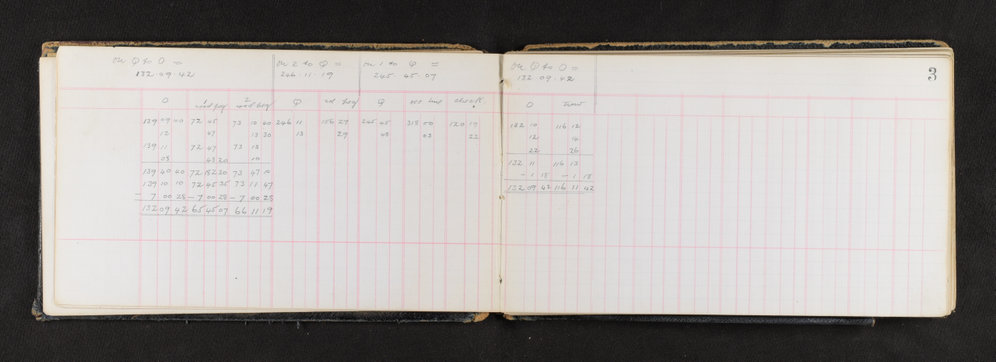 On Φ to O =
132 · 09 · 42
On 2 to Φ =
246 · 11 · 19
On 1 to Φ =
245 · 45 · 07
O 1 2 Φ Φ
139 09 40 72 45 73 10 00 246 11 156 27 245 45 315 00 120 19
12 47 13 30 13 29 48 03 22
139 11 72 47 73 13
08 43 20 10
139 40 40 72 152 20 73 47 10
139 10 10 72 45 35 73 11 47
= 7 00 28 – 7 00 28 – 7 00 28
132 09 42 65 45 07 66 11 19
On Φ to O =
132 · 09 · 42
3
O
132 10 116 12
12 14
22 26
132 11 116 13
– 1 18 – 1 18
132 09 42 116 11 42